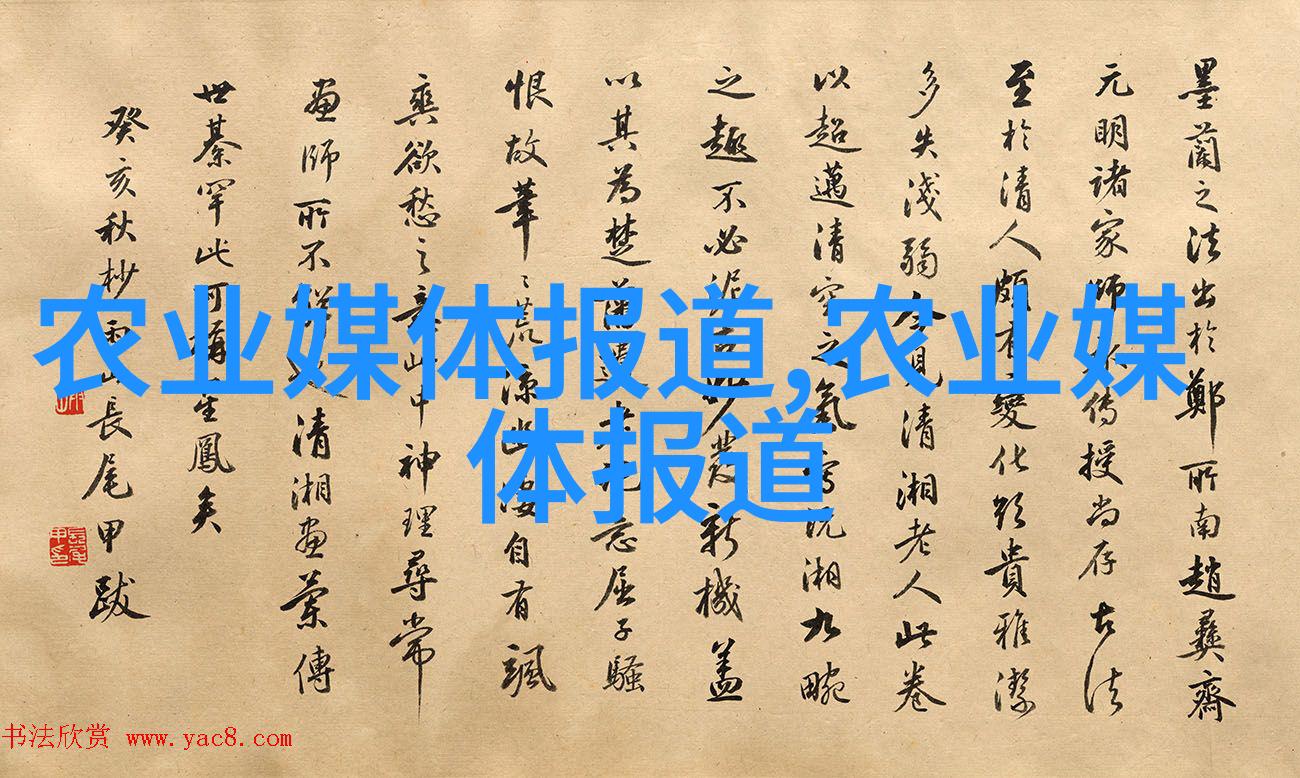 墨蘭之法出於鄭所南趙彝齋
元明諸家師承傳授尚存古法
至於清人頗有變化貴雅潔
多失淺弱今見清湘老人此卷
以超邁清空之氣寫沅湘九畹
之趣不必泥發新機蓋
以其為楚蘭屈子騷
恨故筆〻荒涼幽自有颯
爽欲愁之意此中神理尋常
畫師所不解清湘畫蘭傳
世綦罕此可稱星鳳矣
癸亥秋杪雨山長尾甲跋
农业媒体报道,农业媒
体报道
书法欣赏 www.yac8.com